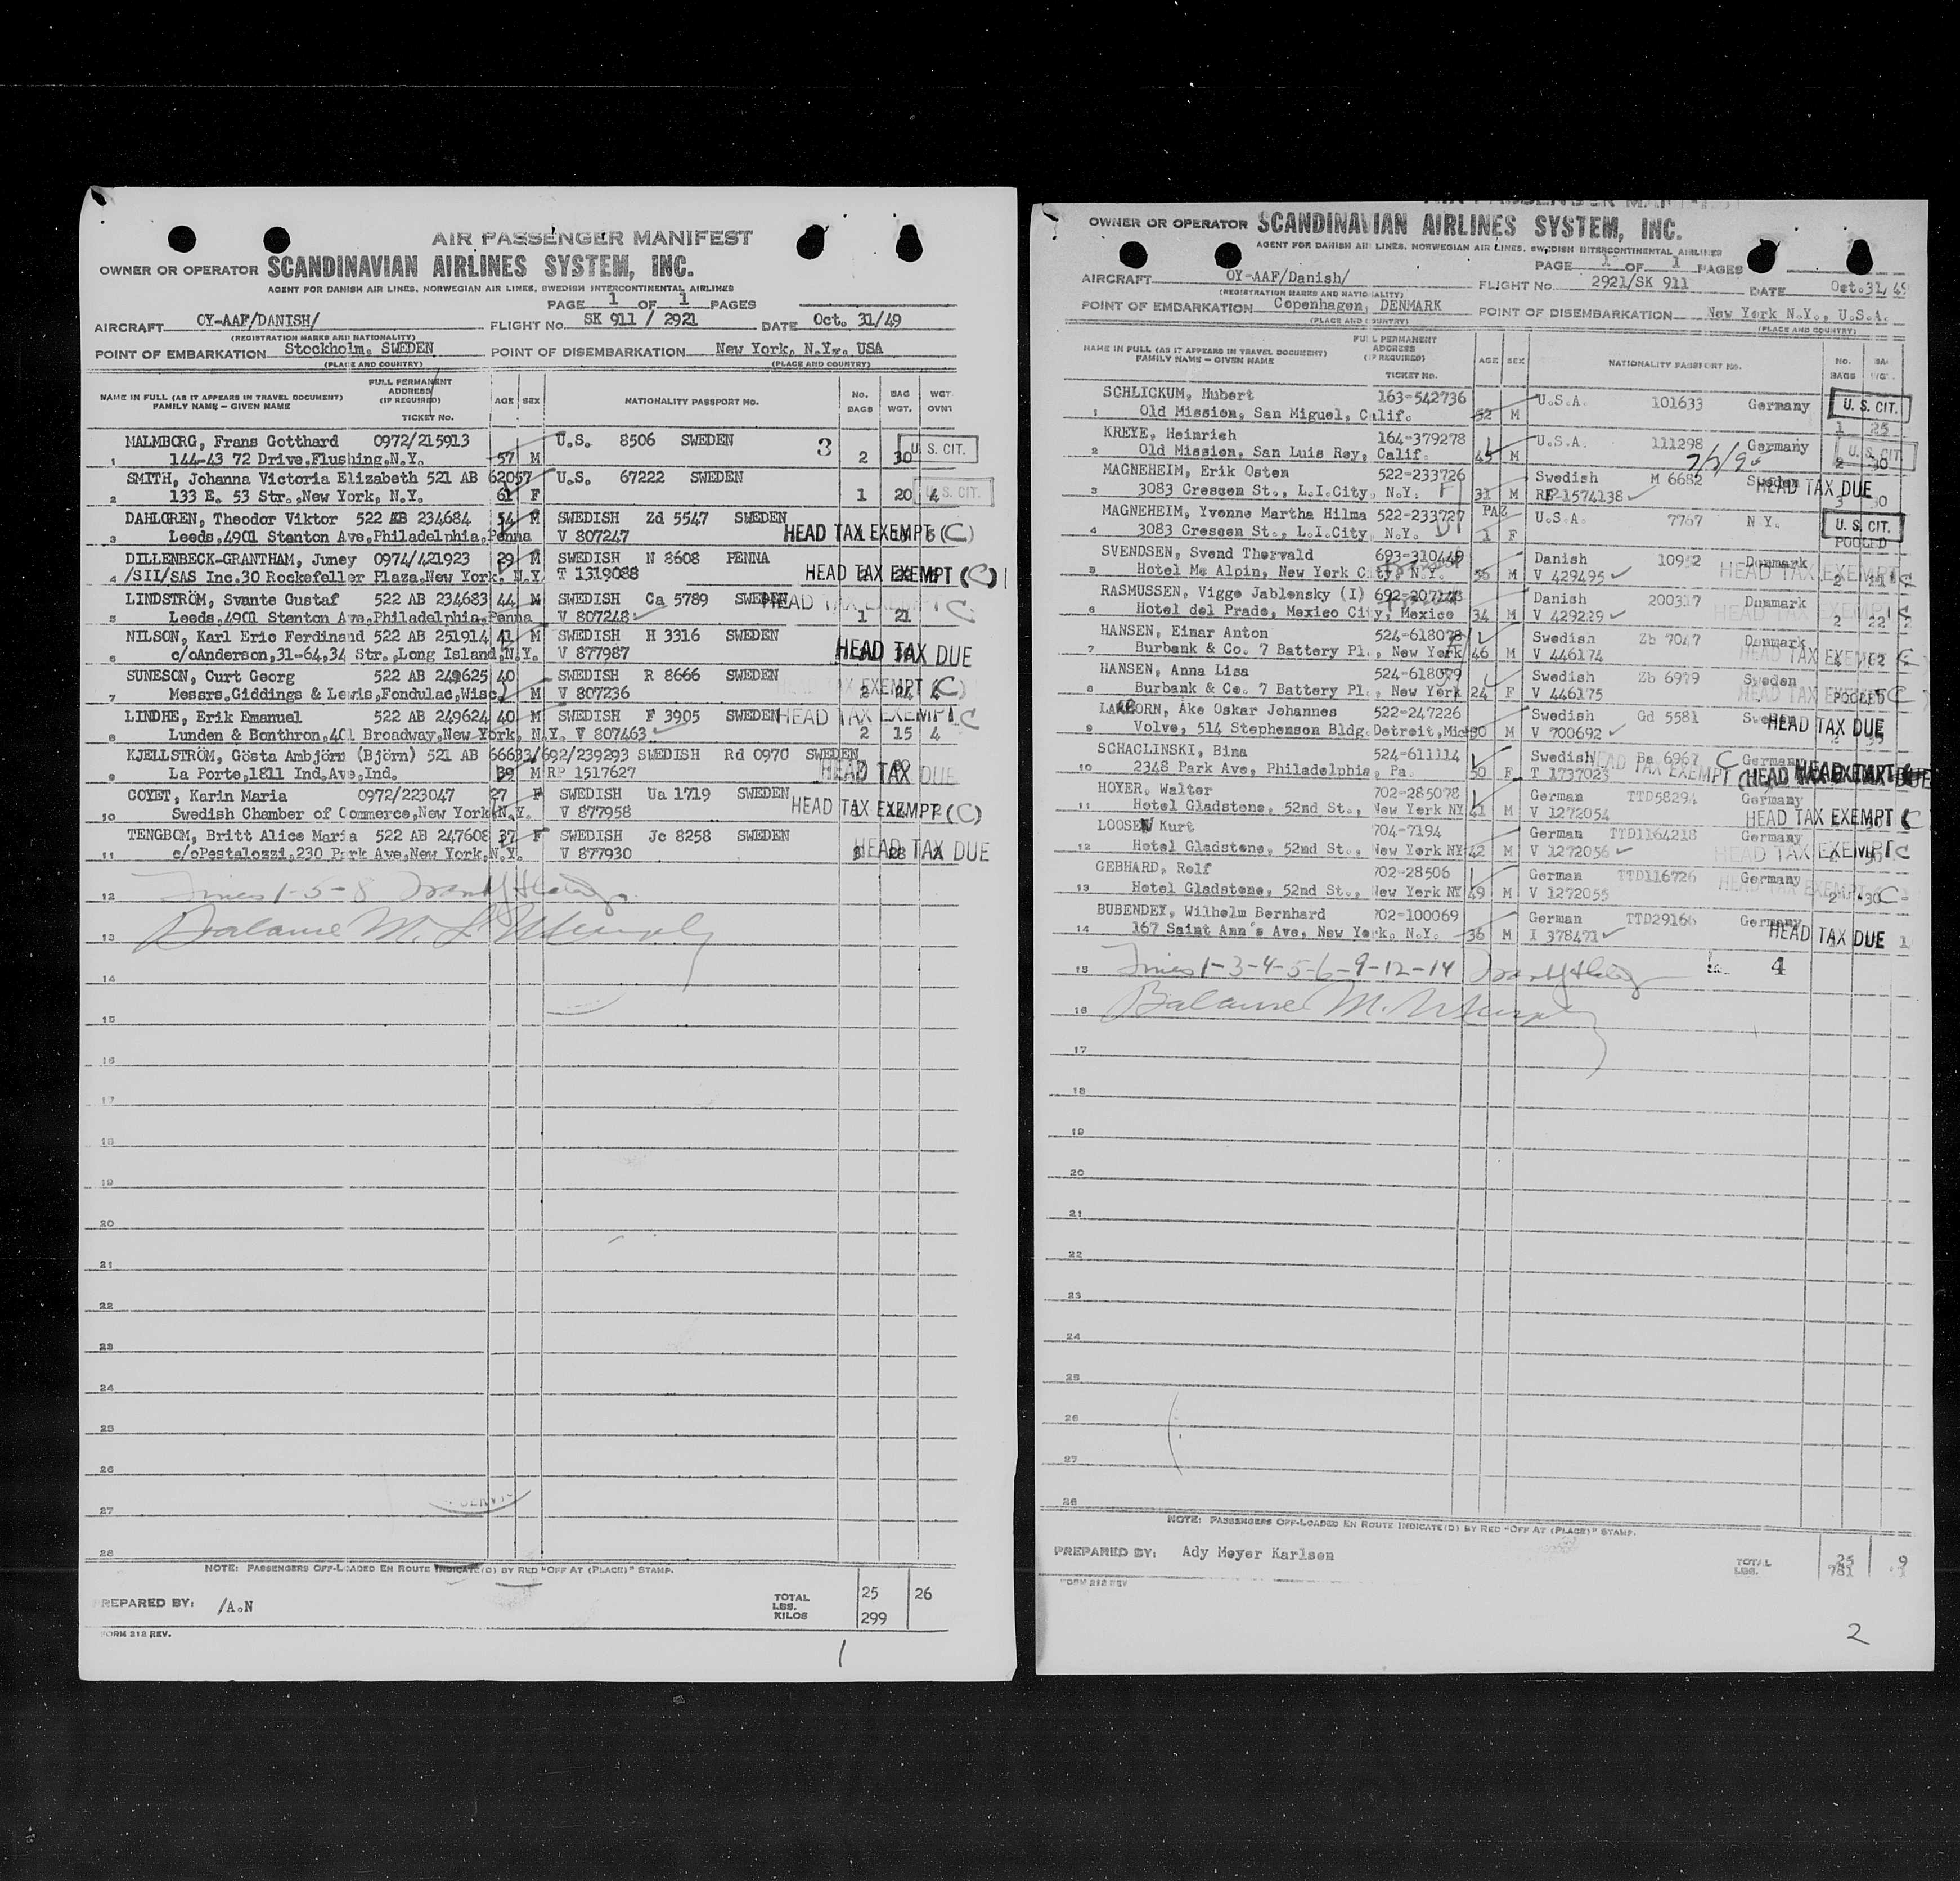 AIR PASSENGER MANIFEST
OWNER OR OPERATOR SCANDINAVIAN AIRLINES SYSTEM, INC.
AGENT FOR DANISH AIR LINES, NORWEGIAN AIR LINES, SWEDISH INTERCONTINENTAL AIRLINES
PAGE 1 OF 1 PAGES
AIRCRAFT OY-AAF/DANISH/ FLIGHT No. SK 911 / 2921 DATE Oct. 31/49
(REGISTRATION MARKS AND NATIONALITY)
POINT OF EMBARKATION Stockholm. SWEDEN POINT OF DISEMBARKATION New York, N.Y., USA
(PLACE AND COUNTRY) (PLACE AND COUNTRY)
NAME IN FULL (AS IT APPEARS IN TRAVEL DOCUMENT) FAMILY NAME – GIVEN NAME FULL PERMANENT ADDRESS (IF REQUIRED) TICKET No. AGE SEX NATIONALITY PASSPORT No. No. BAGS BAG WGT. WGT. OVNT
MALMBORG, Frans Gotthard 0972/215913 U.S. 8506 SWEDEN 3 U. S. CIT.
1 144-43 72 Drive,Flushing,N.Y. 57 M 2 30
SMITH, Johanna Victoria Elizabeth 521 AB 62057 U.S. 67222 SWEDEN U. S. CIT.
2 133 E. 53 Str.,New York, N.Y. 61 F 1 20 4
DAHLGREN, Theodor Viktor 522 AB 234684 54 M SWEDISH Zd 5547 SWEDEN HEAD TAX EXEMPT (C)
3 Leeds,4901 Stenton Ave,Philadelphia,Penna V 807247
DILLENBECK-GRANTHAM, Juney 0974/421923 29 M SWEDISH N 8608 PENNA HEAD TAX EXEMPT (C)
4 /SII/SAS Inc.30 Rockefeller Plaza,New York, N.Y. T 1319088
LINDSTRÖM, Svante Gustaf 522 AB 234683 44 M SWEDISH Ca 5789 SWEDEN HEAD TAX EXEMPT C
5 Leeds,4901 Stenton Ave,Philadelphia,Penna V 807248 1 21
NILSON, Karl Eric Ferdinand 522 AB 251914 41 M SWEDISH H 3316 SWEDEN HEAD TAX DUE
6 c/oAnderson,31-64,34 Str.,Long Island,N.Y. V 877987
SUNESON, Curt Georg 522 AB 249625 40 SWEDISH R 8666 SWEDEN HEAD TAX EXEMPT (C)
7 Messrs,Giddings & Lewis,Fondulac,Wisc. M V 807236 2 24 4
LINDHE, Erik Emanuel 522 AB 249624 40 M SWEDISH F 3905 SWEDEN HEAD TAX EXEMPT C
8 Lunden & Bonthron,401 Broadway,New York, N.Y. V 807463 2 15 4
KJELLSTRÖM, Gösta Ambjörn (Björn) 521 AB 66633/692/239293 SWEDISH Rd 0970 SWEDEN
9 La Porte,1811 Ind,Ave,Ind. 39 M RP 1517627 HEAD TAX DUE
COYET, Karin Maria 0972/223047 27 F SWEDISH Ua 1719 SWEDEN HEAD TAX EXEMPT (C)
10 Swedish Chamber of Commerce,New York,N.Y. V 877958
TENGBOM, Britt Alice Maria 522 AB 247608 37 F SWEDISH Jc 8258 SWEDEN HEAD TAX DUE
11 c/oPestalozzi,230 Park Ave,New York,N.Y. V 877930 28
12 Lines 1-5-8
13 Balance M.
14
15
16
17
18
19
20
21
22
23
24
25
26
27
28
NOTE: PASSENGERS OFF-LOADED EN ROUTE INDICATE(D) BY RED "OFF AT (PLACE)" STAMP.
PREPARED BY: /A.N TOTAL LBS. KILOS 25 299 26
FORM 212 REV.
1
OWNER OR OPERATOR SCANDINAVIAN AIRLINES SYSTEM, INC.
AGENT FOR DANISH AIR LINES, NORWEGIAN AIR LINES, SWEDISH INTERCONTINENTAL AIRLINES
PAGE 1 OF 1 PAGES
AIRCRAFT OY-AAF/Danish/ FLIGHT No. 2921/SK 911 DATE Oct.31, 49
(REGISTRATION MARKS AND NATIONALITY)
POINT OF EMBARKATION Copenhagen, DENMARK POINT OF DISEMBARKATION New York N.Y., U.S.A.
(PLACE AND COUNTRY) (PLACE AND COUNTRY)
NAME IN FULL (AS IT APPEARS IN TRAVEL DOCUMENT) FAMILY NAME – GIVEN NAME FULL PERMANENT ADDRESS (IF REQUIRED) TICKET No. AGE SEX NATIONALITY PASSPORT No. No. BAGS BAG WGT.
SCHLICKUM, Hubert 163-542736 U.S.A. 101633 Germany U. S. CIT.
1 Old Mission, San Miguel, Calif. 52 M 1 25
KREYE, Heinrich 164-379278 U.S.A. 111298 Germany U. S. CIT.
2 Old Mission, San Luis Rey, Calif. 45 M 2 30
MAGNEHEIM, Erik Osten 522-233726 Swedish M 6682 Sweden HEAD TAX DUE
3 3083 Crescen St., L.I.City, N.Y. 31 M RP 1574138 3 30
MAGNEHEIM, Yvonne Martha Hilma 522-233727 PAZ U.S.A. 7767 N Y. U. S. CIT.
4 3083 Crescen St., L.I.City, N.Y. 1 F POOLED
SVENDSEN, Svend Thorvald 693-310449 Danish 10952 Denmark HEAD TAX EXEMPT C
5 Hotel Mc Alpin, New York City, N.Y. 56 M V 429495 2 21
RASMUSSEN, Viggo Jablonsky (I) 692-207148 Danish 200317 Denmark HEAD TAX EXEMPT C
6 Hotel del Prado, Mexico City, Mexico 34 M V 429229 2 22
HANSEN, Einar Anton 524-618078 Swedish Zb 7047 Denmark HEAD TAX EXEMPT C
7 Burbank & Co. 7 Battery Pl., New York 46 M V 446174 4 62
HANSEN, Anna Lisa 524-618079 Swedish Zb 6979 Sweden HEAD TAX EXEMPT C
8 Burbank & Co. 7 Battery Pl., New York 24 F V 446175 POOLED
LAGERORN, Åke Oskar Johannes 522-247226 Swedish Gd 5581 Sweden HEAD TAX DUE
9 Volvo, 514 Stephenson Bldg. Detroit,Mich 30 M V 700692
SCHACLINSKI, Bina 524-611114 Swedish Ba 6967 C Germany HEAD TAX EXEMPT
10 2348 Park Ave, Philadelphia, Pa. 50 F T 1737023
HOYER, Walter 702-285078 German TTD58294 Germany HEAD TAX EXEMPT C
11 Hotel Gladstone, 52nd St., New York NY 41 M V 1272054
LOOSEN Kurt 704-7194 German TTD1164218 Germany HEAD TAX EXEMPT C
12 Hotel Gladstone, 52nd St., New York NY 42 M V 1272056
GEBHARD, Rolf 702-28506 German TTD116726 Germany HEAD TAX EXEMPT C
13 Hotel Gladstone, 52nd St., New York NY 49 M V 1272055 2 30
BUBENDEY, Wilhelm Bernhard 702-100069 German TTD29166 Germany HEAD TAX DUE
14 167 Saint Ann's Ave, New York, N.Y. 36 M I 378471 1
15 Lines 1-3-4-5-6-9-12-14 4
16 Balance M.
17
18
19
20
21
22
23
24
25
26
27
28
NOTE: PASSENGERS OFF-LOADED EN ROUTE INDICATE(D) BY RED "OFF AT (PLACE)" STAMP.
PREPARED BY: Ady Meyer Karlsen TOTAL LBS. 25 781 9
FORM 212 REV
2